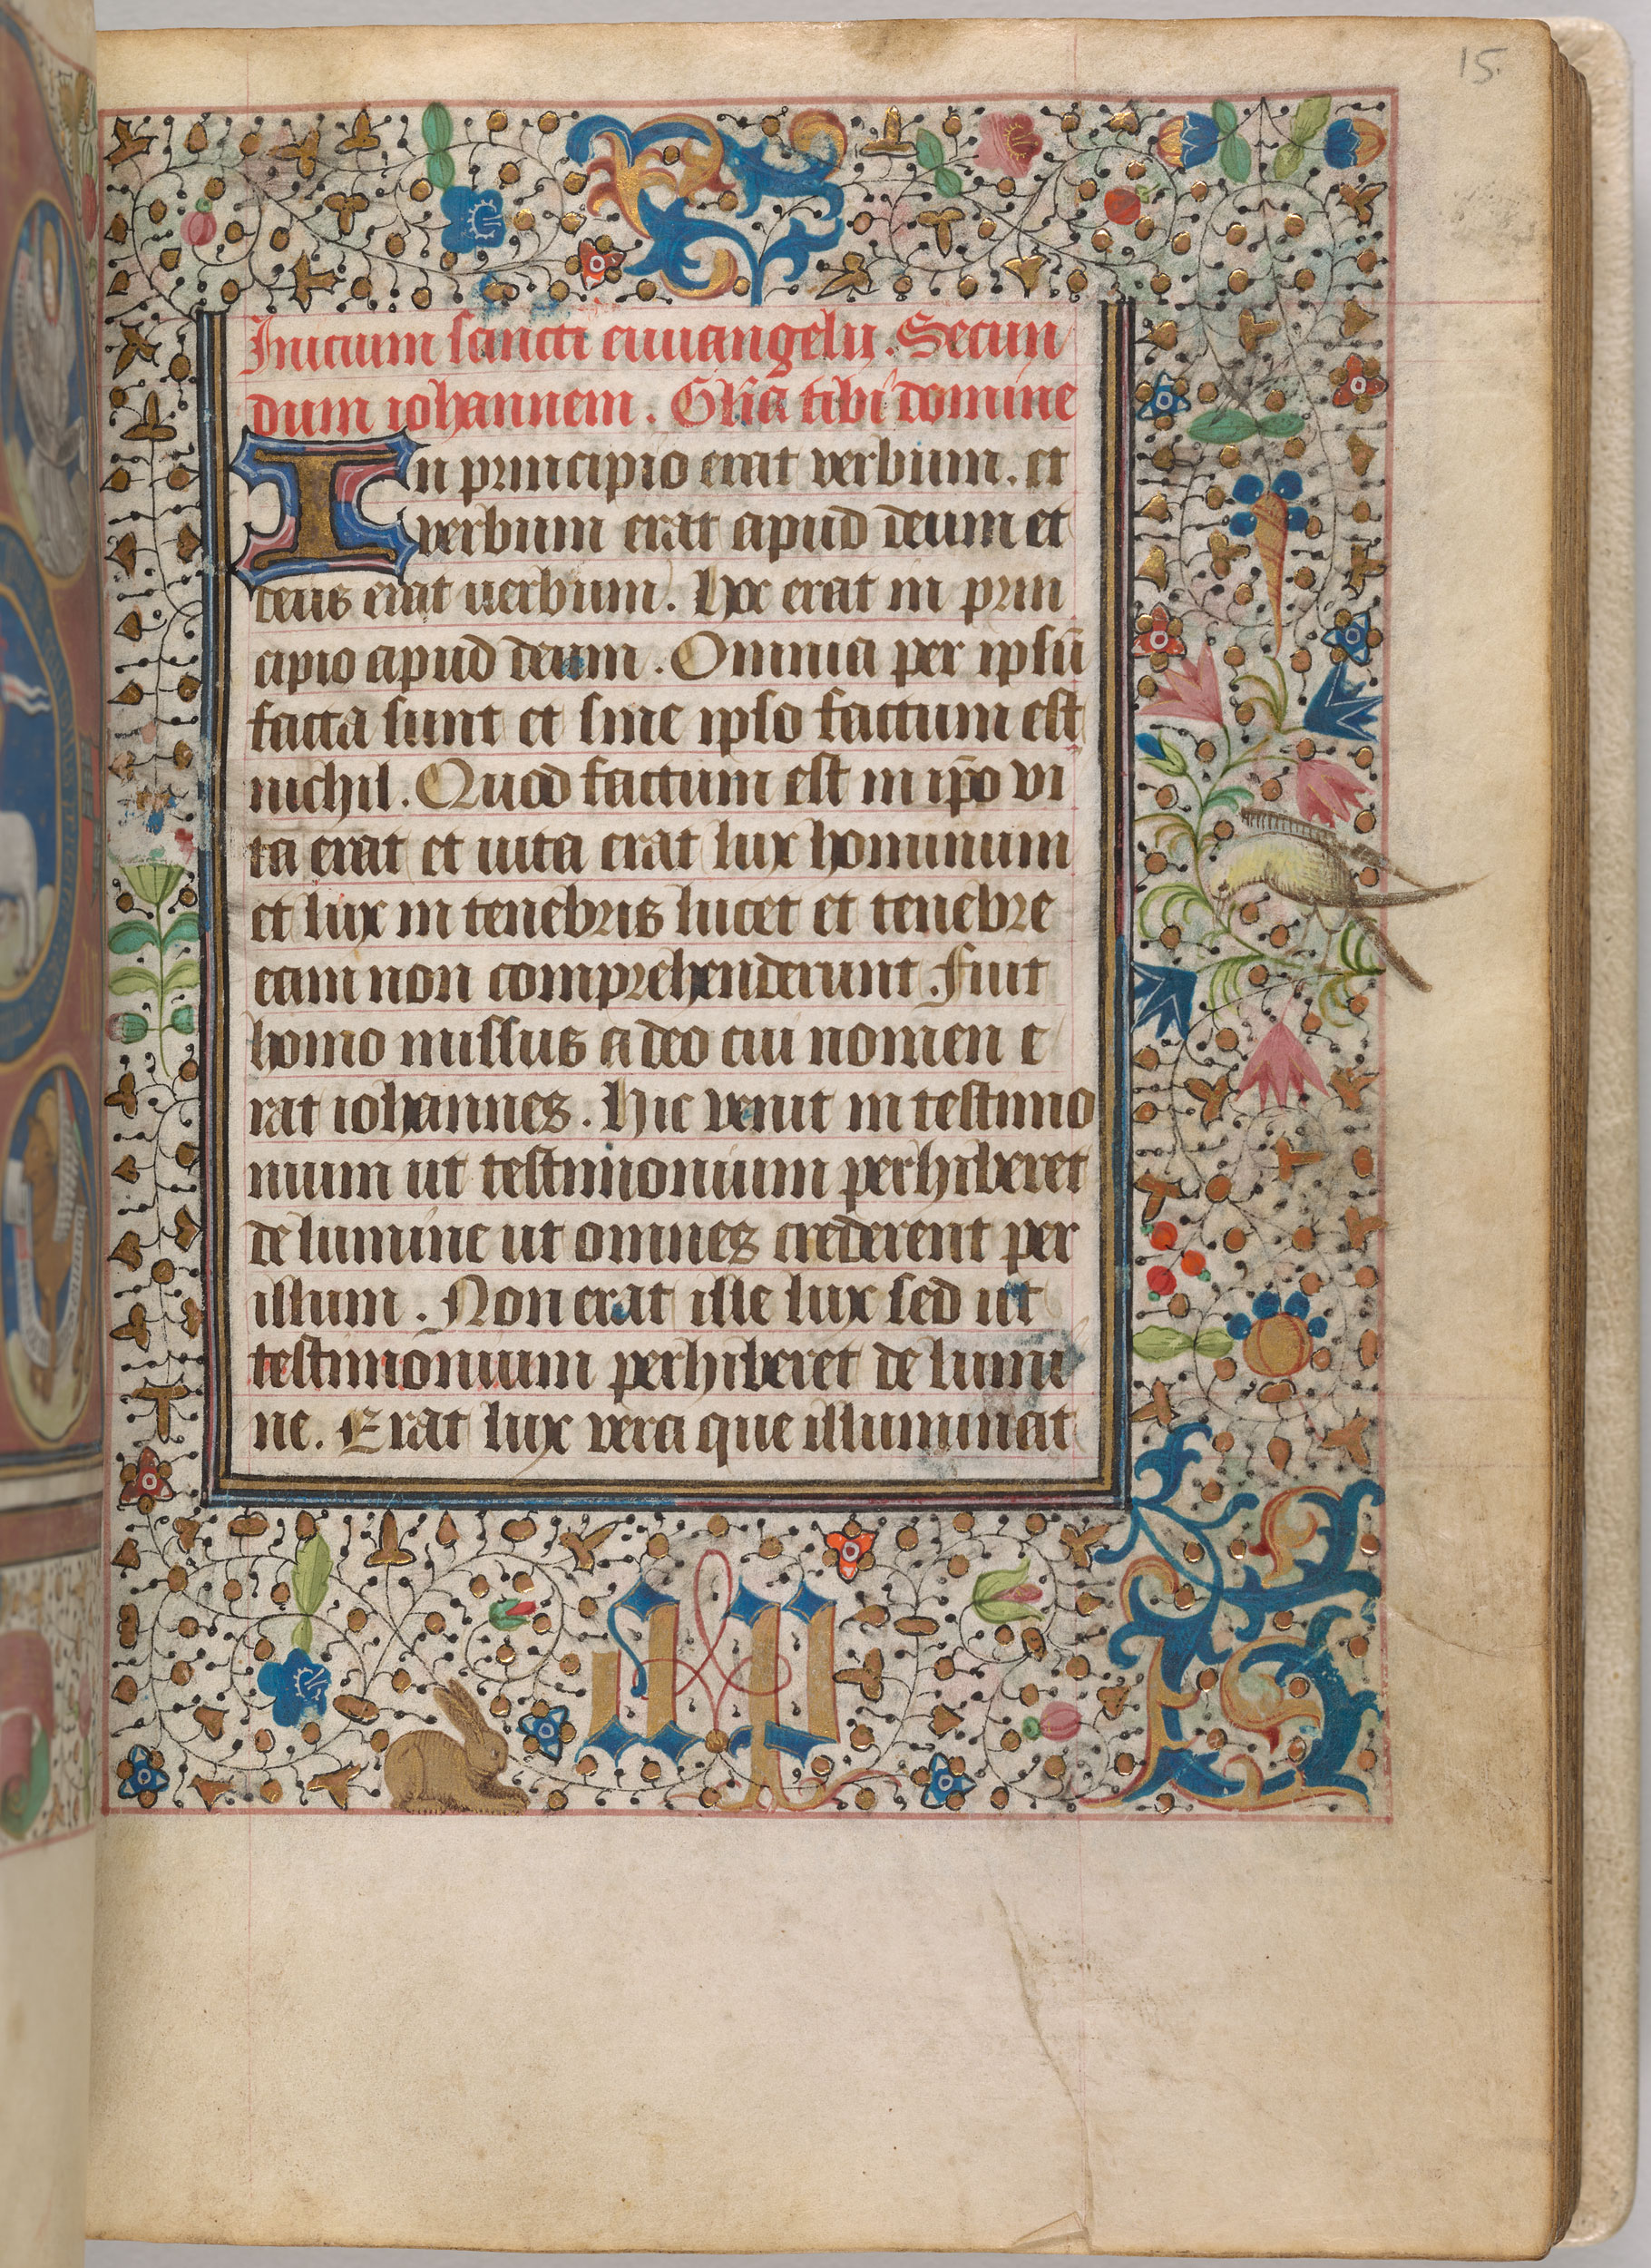 15.
Inicium sancti euuangelij. Secun
dum iohannem. Glia tibi domine
In principio erat verbum. et
verbum erat apud deum et
deus erat uerbum. Hoc erat in prin
cipio apud deum. Omnia per ipsū
facta sunt et sine ipso factum est
nichil. Quod factum est in ip̄o vi
ta erat et uita erat lux hominum
et lux in tenebris lucet et tenebre
eam non comprehenderunt. Fuit
homo missus a deo cui nomen e
rat iohannes. Hic venit in testimo
nium ut testimonium perhiberet
de lumine ut omnes crederent per
illum. Non erat ille lux sed ut
testimonium perhiberet de lumi
ne. Erat lux vera que illuminat